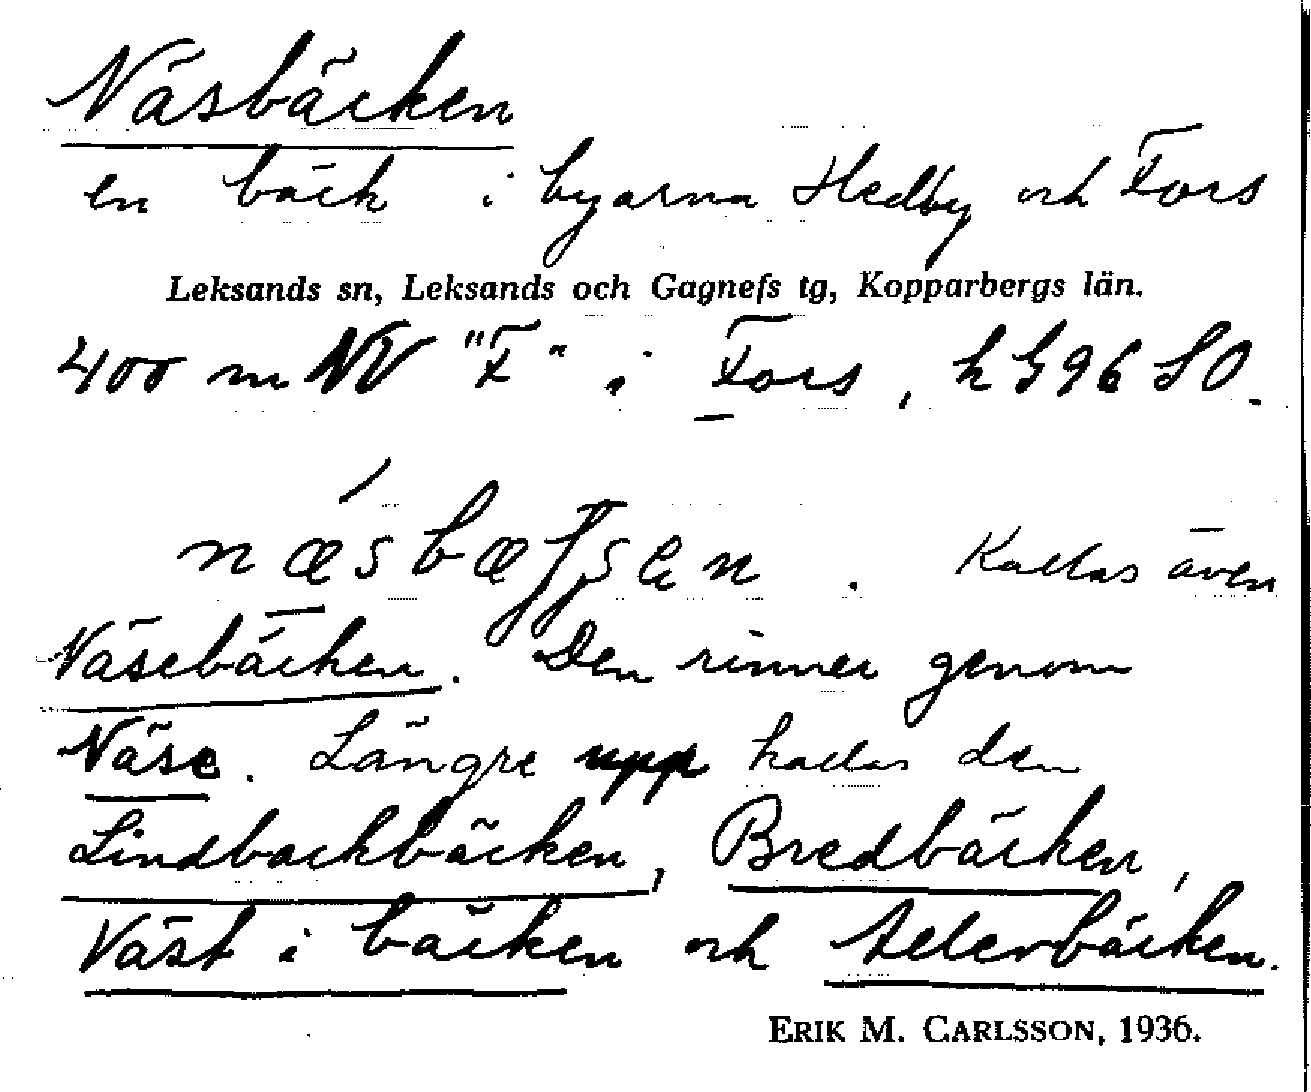 Näsbäcken
en bäck i byarna Hedby och Fors
Leksands sn, Leksands och Gagnefs tg, Kopparbergs län.
400 m NV "F" i Fors, h G 96 SO.
Kallas även
Näsebäcken. Den rinner genom
Näse. Längre upp kallas den
Lindbackbäcken, Bredbäcken,
Väst i bäcken och
ERIK M. CARLSSON, 1936.